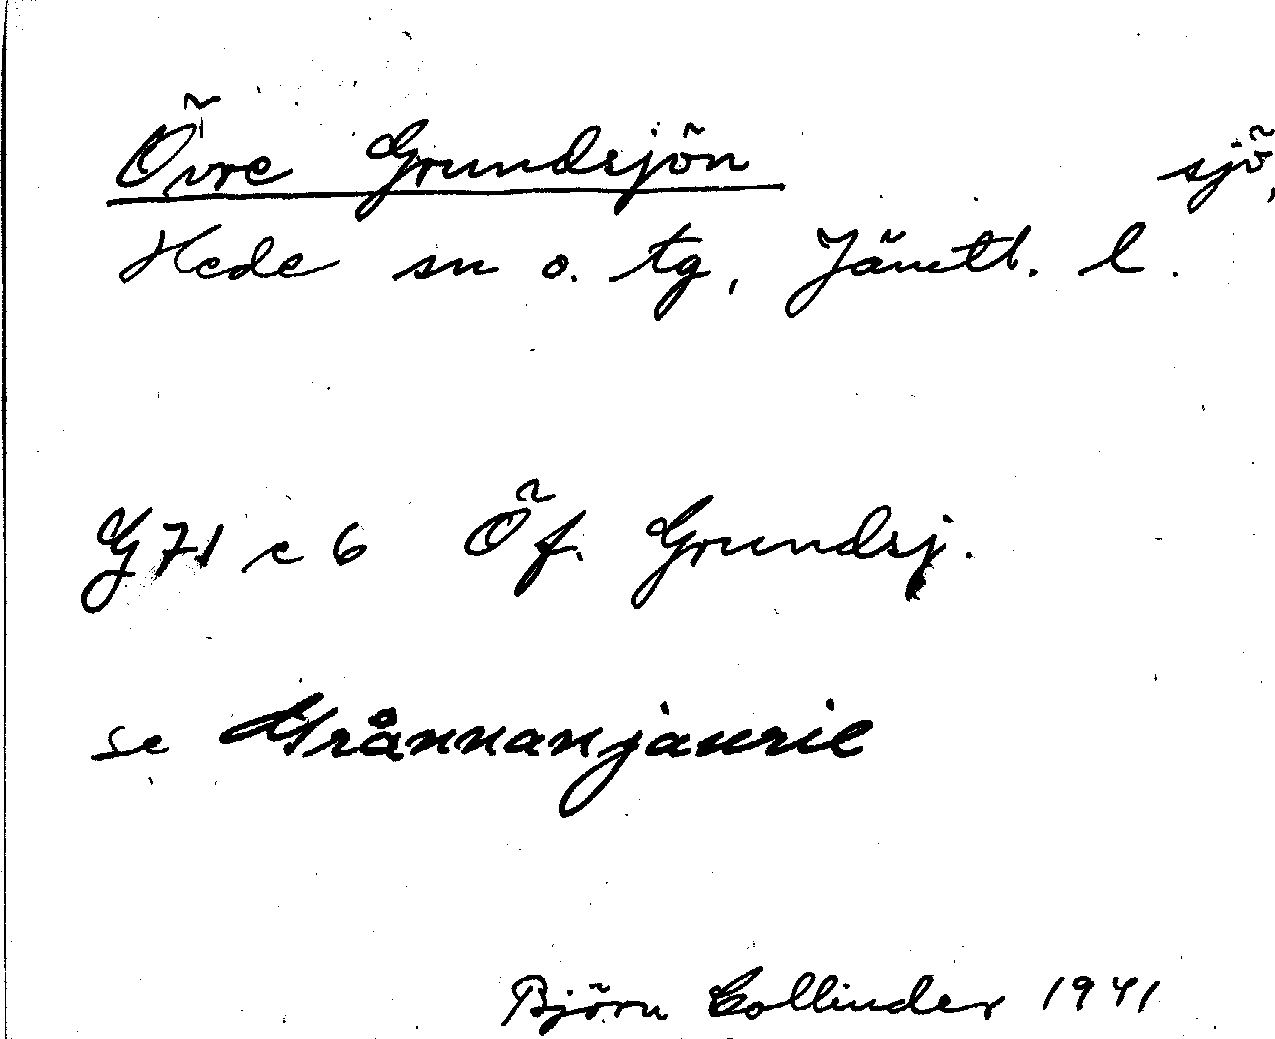 Övre Grundsjön sjö,
Hede sn o. tg, Jämtl. l.
G 71 c 6 Öf. Grundsj.
se Grånnanjaurie
Björn Collinder 1941